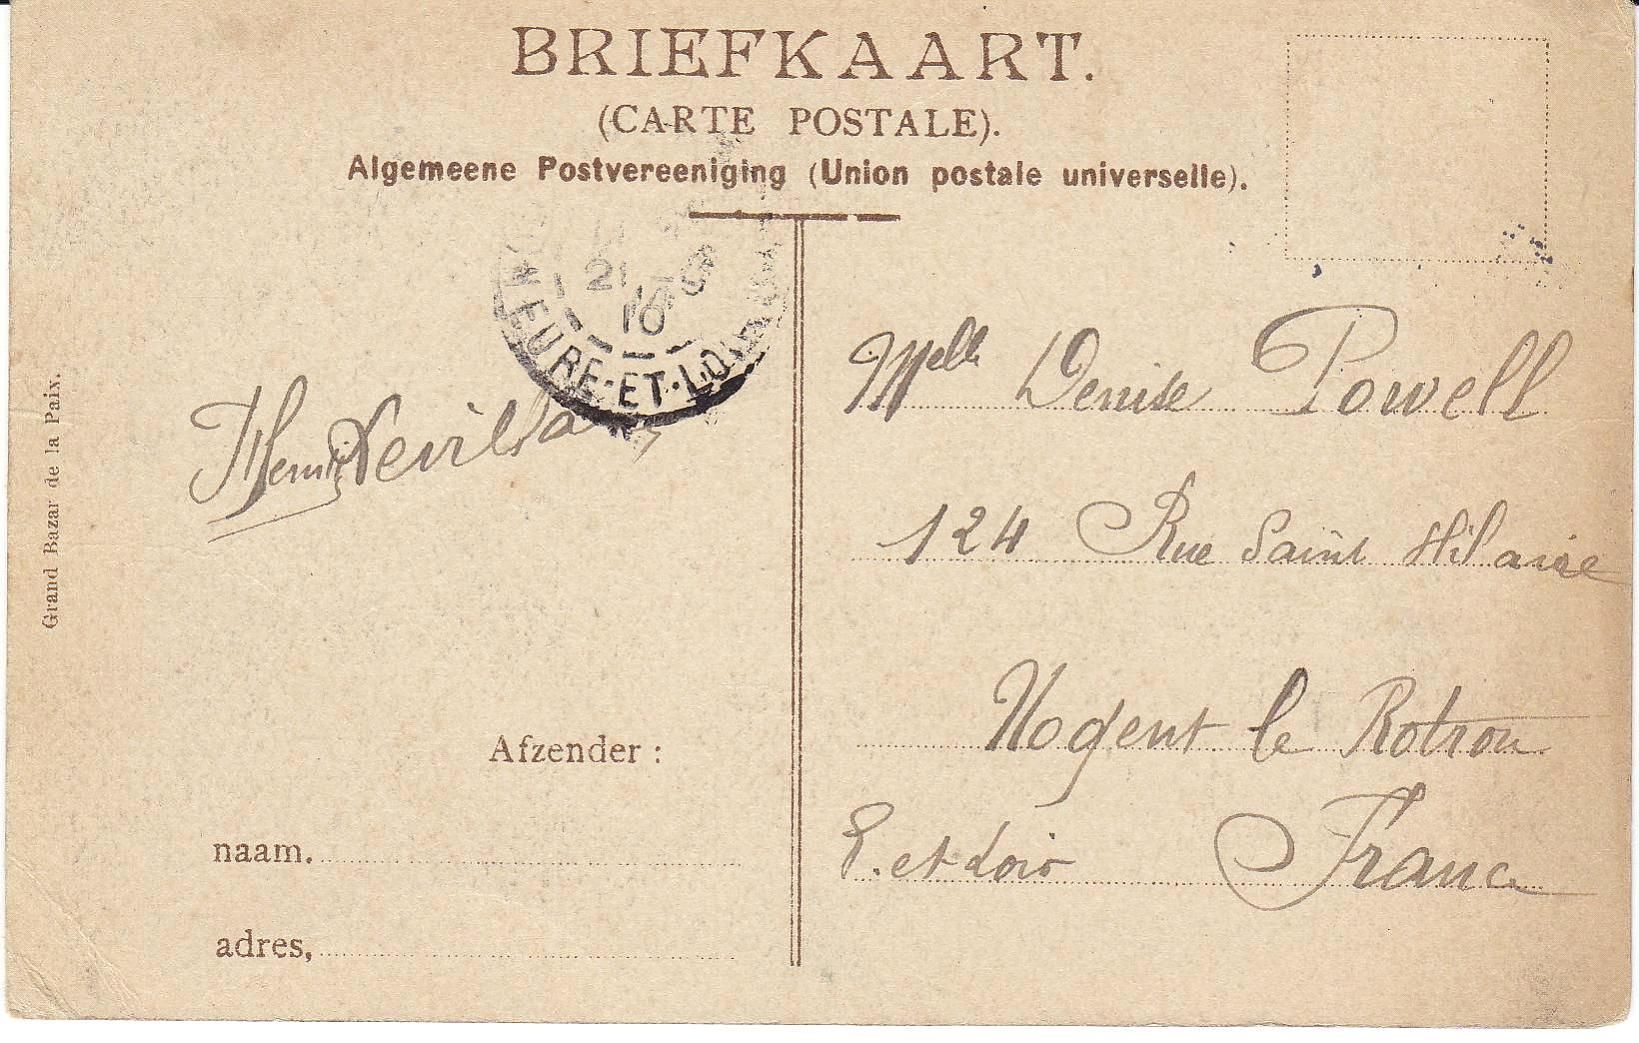 BRIEFKAART.
(CARTE POSTALE).
Algemeene Postvereeniging (Union postale universelle).
21 -5
10
EURE-ET-LOIR
Grand Bazar de la Paix.
Henri
Melle Denise Powell
124 Rue Saint Hilaire
Nogent le Rotrou
E. et Loir France
Afzender :
naam.
adres,